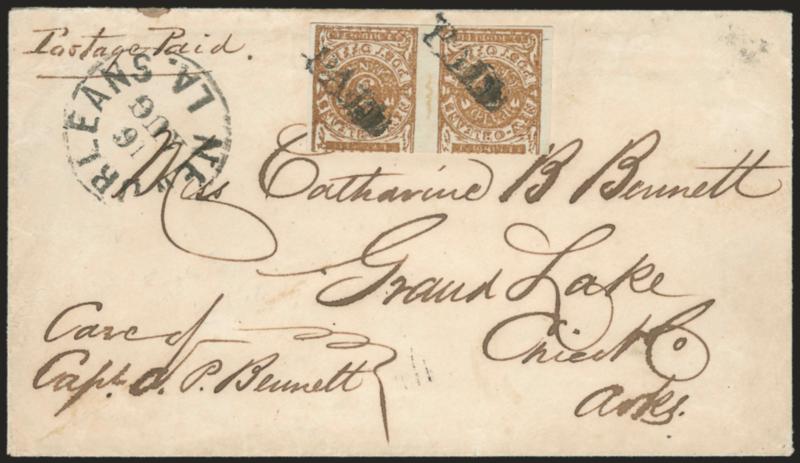 Postage Paid.
NEW ORLEANS. LA.
16
AUG
PAID
PAID
Miss Catharine B Bennett
Grand Lake
Chicot Co
Arks.
Care of
Capt. O. P. Bennett